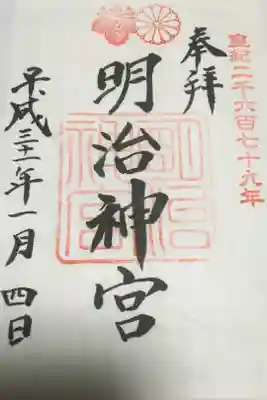 皇紀二千六百七十九年
奉拝
明治神宮
明治神宮
平成三十一年一月四日